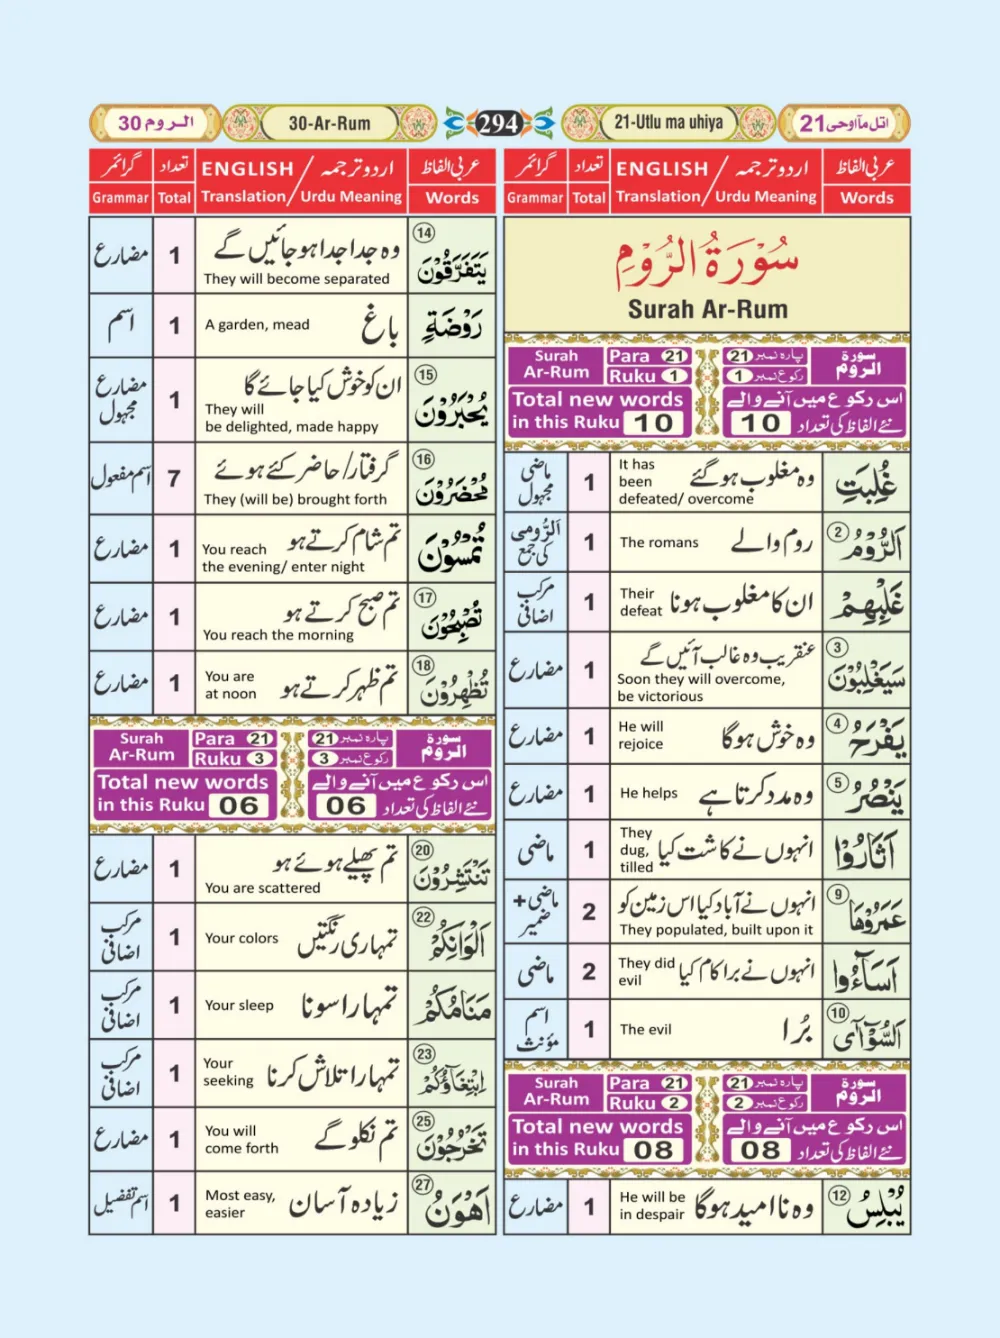 الروم 30
30-Ar-Rum
294
21-Utlu ma uhiya
اتل مآاوحی 21
عربی الفاظ
اردو ترجمہ / ENGLISH
تعداد
گرائمر
Words
Translation / Urdu Meaning
Total
Grammar
سُوْرَةُ الرُّوْمِ
Surah Ar-Rum
Surah Ar-Rum
Para 21
Ruku 1
پارہ نمبر 21
رکوع نمبر 1
سورۃ الروم
Total new words in this Ruku 10
اس رکوع میں آنے والے
نئے الفاظ کی تعداد 10
غُلِبَتِ
وہ مغلوب ہو گئے
It has been defeated/ overcome
1
ماضی مجہول
اَلرُّوْمُ ②
روم والے
The romans
1
اَلرُّومی کی جمع
غَلَبِهِمْ
ان کا مغلوب ہونا
Their defeat
1
مرکب اضافی
سَيَغْلِبُوْنَ ③
عنقریب وہ غالب آئیں گے
Soon they will overcome,
be victorious
1
مضارع
يَفْرَحُ ④
وہ خوش ہوگا
He will rejoice
1
مضارع
يَنْصُرُ ⑤
وہ مدد کرتا ہے
He helps
1
مضارع
اَثَارُوا
انہوں نے کاشت کیا
They dug, tilled
1
ماضی
عَمَرُوْهَا ⑨
انہوں نے آباد کیا اس زمین کو
They populated, built upon it
2
ماضی + ضمیر
اَسَآءُوا
انہوں نے برا کام کیا
They did evil
2
ماضی
اَلسُّوْٓاٰى ⑩
بُرا
The evil
1
اسم مؤنث
Surah Ar-Rum
Para 21
Ruku 2
پارہ نمبر 21
رکوع نمبر 2
سورۃ الروم
Total new words in this Ruku 08
اس رکوع میں آنے والے
نئے الفاظ کی تعداد 08
يُبْلِسُ ⑫
وہ ناامید ہوگا
He will be in despair
1
مضارع
عربی الفاظ
اردو ترجمہ / ENGLISH
تعداد
گرائمر
Words
Translation / Urdu Meaning
Total
Grammar
يَتَفَرَّقُوْنَ ⑭
وہ جدا جدا ہو جائیں گے
They will become separated
1
مضارع
رَوْضَةٍ
باغ
A garden, mead
1
اسم
يُحْبَرُوْنَ ⑮
ان کو خوش کیا جائے گا
They will
be delighted, made happy
1
مضارع مجہول
مُحْضَرُوْنَ ⑯
گرفتار/ حاضر کئے ہوئے
They (will be) brought forth
7
اسم مفعول
تُمْسُوْنَ
تم شام کرتے ہو
You reach
the evening/ enter night
1
مضارع
تُصْبِحُوْنَ ⑰
تم صبح کرتے ہو
You reach the morning
1
مضارع
تُظْهِرُوْنَ ⑱
تم ظہر کرتے ہو
You are at noon
1
مضارع
Surah Ar-Rum
Para 21
Ruku 3
پارہ نمبر 21
رکوع نمبر 3
سورۃ الروم
Total new words in this Ruku 06
اس رکوع میں آنے والے
نئے الفاظ کی تعداد 06
تَنْتَشِرُوْنَ ⑳
تم پھیلے ہوئے ہو
You are scattered
1
مضارع
اَلْوَانِكُمْ ㉒
تمہاری رنگتیں
Your colors
1
مرکب اضافی
مَنَامُكُمْ
تمہارا سونا
Your sleep
1
مرکب اضافی
اِبْتِغَاؤُكُمْ ㉓
تمہارا تلاش کرنا
Your seeking
1
مرکب اضافی
تَخْرُجُوْنَ ㉕
تم نکلو گے
You will come forth
1
مضارع
اَهْوَنُ ㉗
زیادہ آسان
Most easy, easier
1
اسم تفضیل